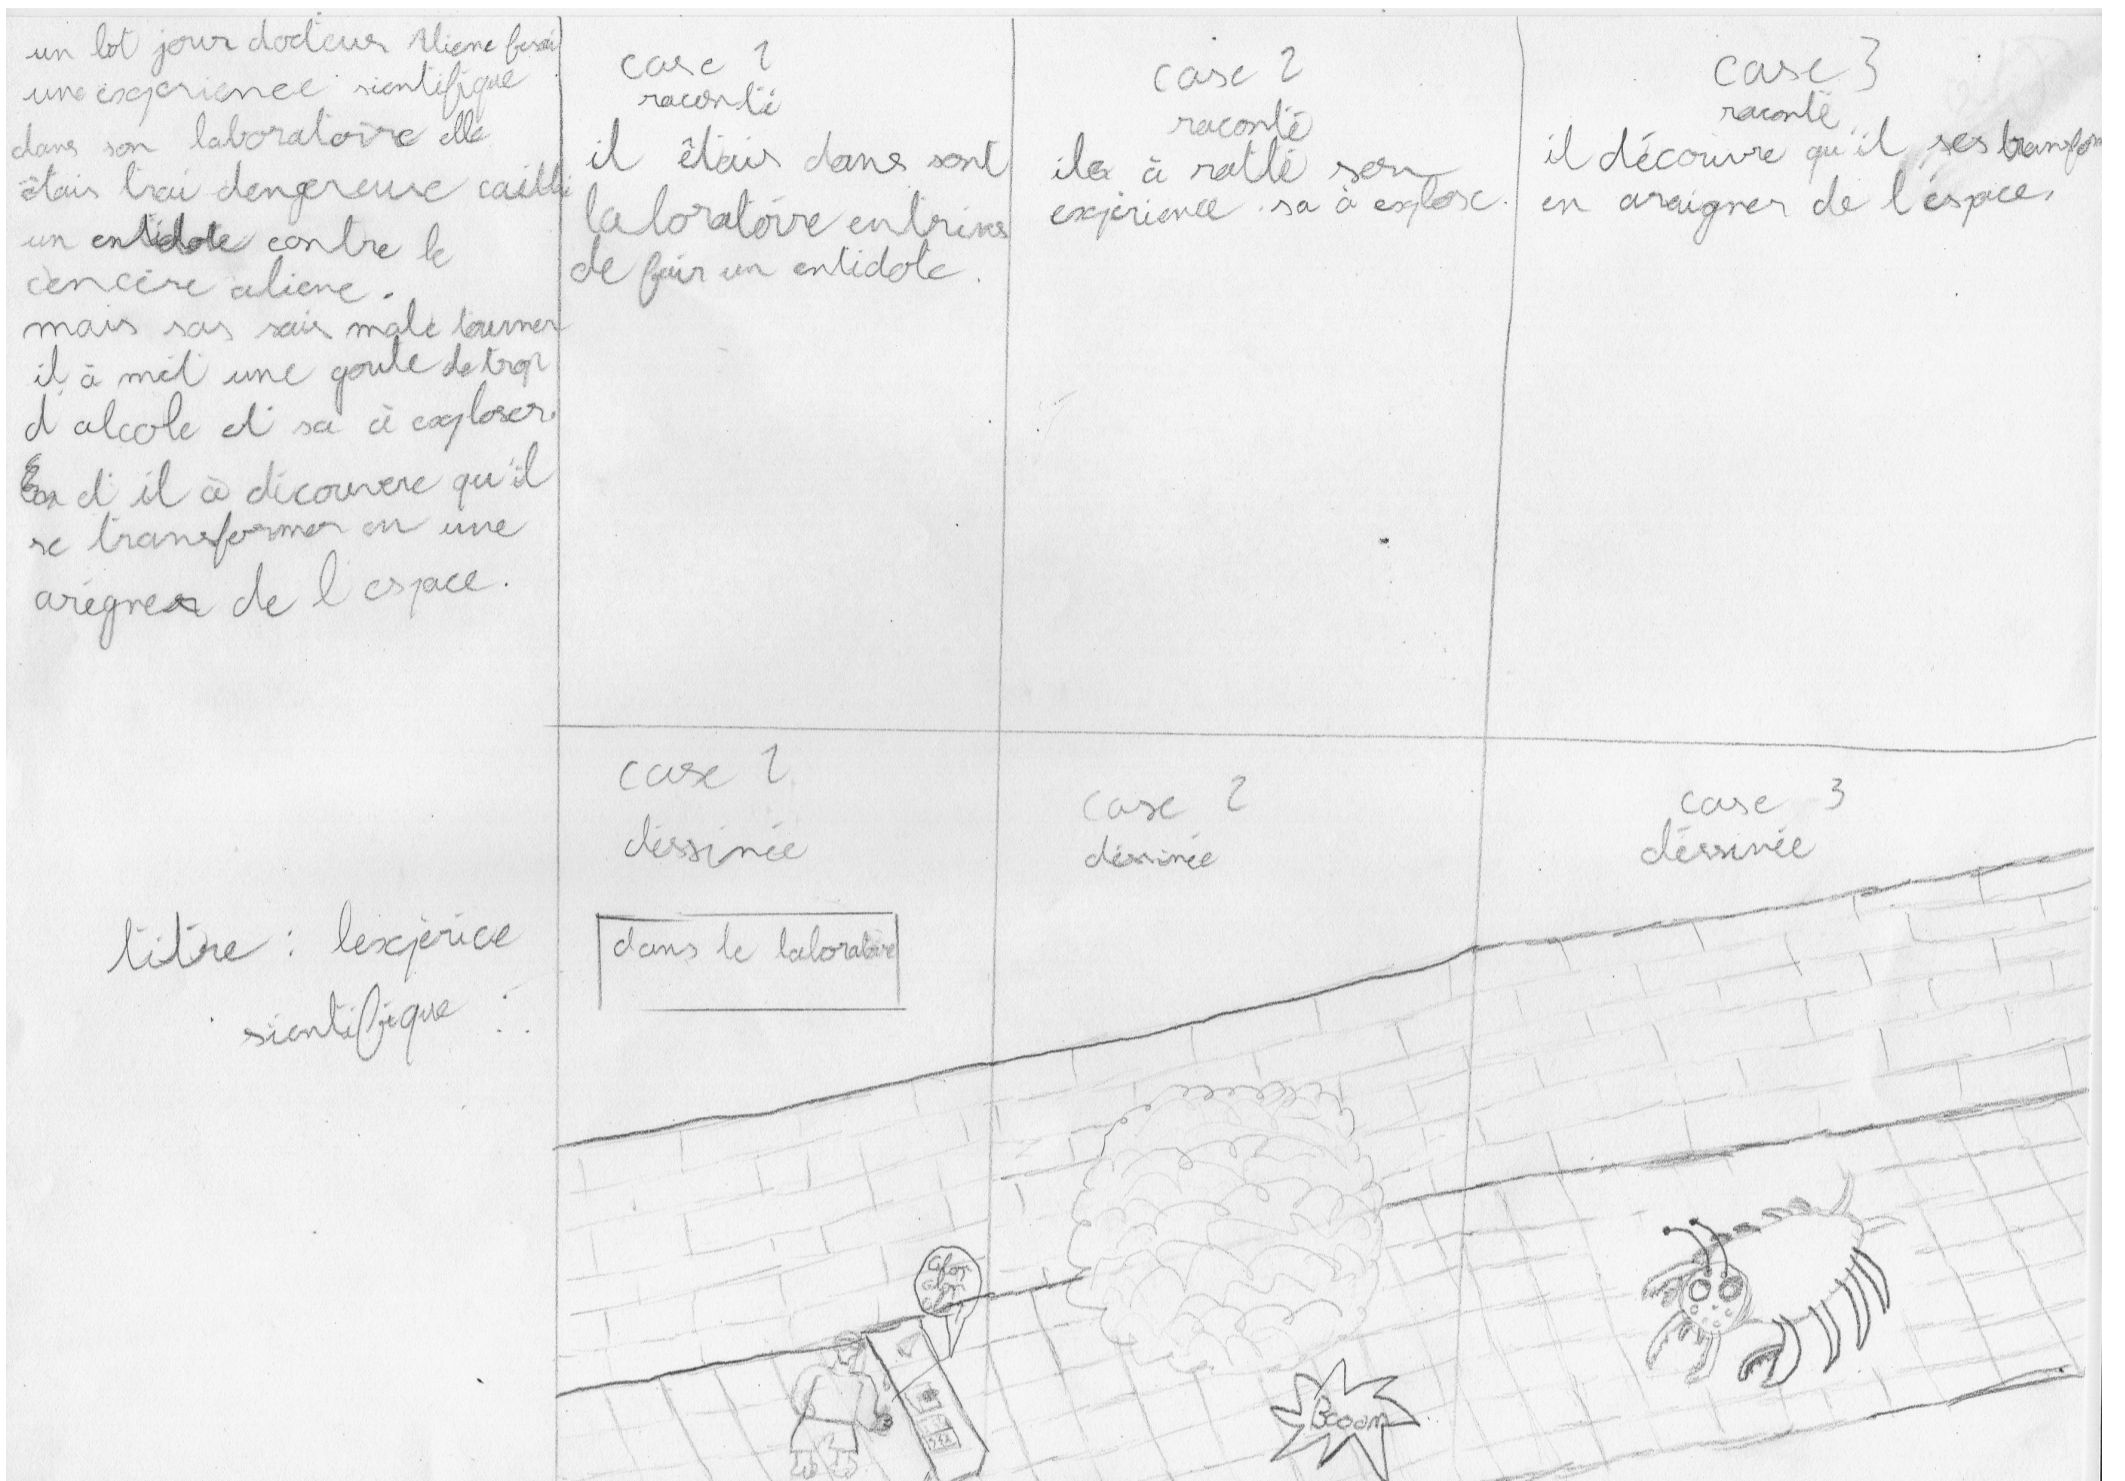 un bot jour docteur Aliene fesai
une experience sientifique
dans son laboratoire elle
étais trai dengereuse
un entidote contre le
cencère aliene.
mais sas sais male tourner
il à mét une goute de trop
d'alcole et sa à exploser.
et il à découvere qu'il
se transformer en une
arégner de l'espace.
case 1
raconté
il êtais dans sont
laboratoire entrines
de fair un entidote.
case 2
raconté
il à ratté son
expérience. sa à explosé.
case 3
raconté
il découvre qu'il ses transform
en araigner de l'éspace.
titre : lexpérice
sientifique :
case 1
déssinée
dans le laboratoire
case 2
déssinée
Booom
case 3
déssinée